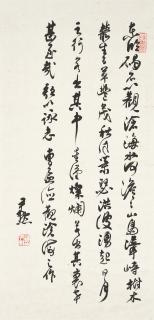 東臨碣石以觀滄海水何澹々山島竦峙樹木
叢生百草豐茂秋風蕭瑟洪波湧起日月
之行若出其中星漢燦爛若出其裏幸
甚至哉歌以詠志 曹孟德觀滄海之作
尹默